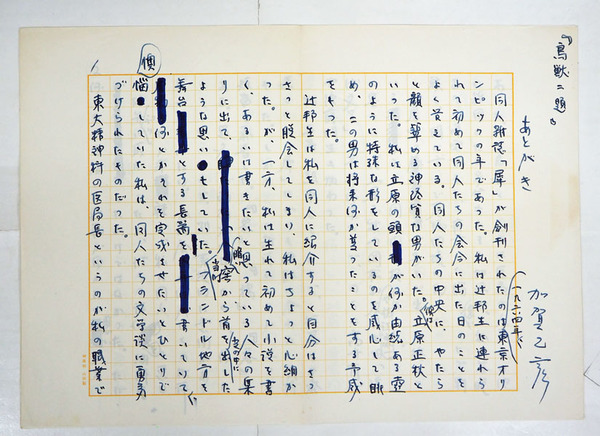 『鳥獣二題』
あとがき
加賀乙彦
同人雑誌「犀」が創刊されたのは東京オリ
(一九六四年)
ンピックの年であった。私は辻邦生に連れら
れて初めて同人たちの会合に出た日のことを
よく覚えている。同人たちの中央に、やたら
と顔を顰める神経質な男がいた。立原正秋と
いった。私は立原の頭が何か由緒ある壺
のように特殊な形をしているのを感心して眺
め、この男は将来何かことをする予感
をもった。
辻邦生は私を同人に紹介すると自分はさっ
さと脱会してしまい、私はちょっと心細か
った。が、一方、私は生れて初めて小説を書
く、あるいは書きたいと思っている人々の集
りに出て、窟から首を出した
ような思いもしていた。フランドル地方を
舞台とする長篇を書いていて、
何とかそれを完成させたいとひとりで
懊
悩していた私は、同人たちの文学談に勇気
づけられたものだった。
東大精神科の医局長というのが私の職業で